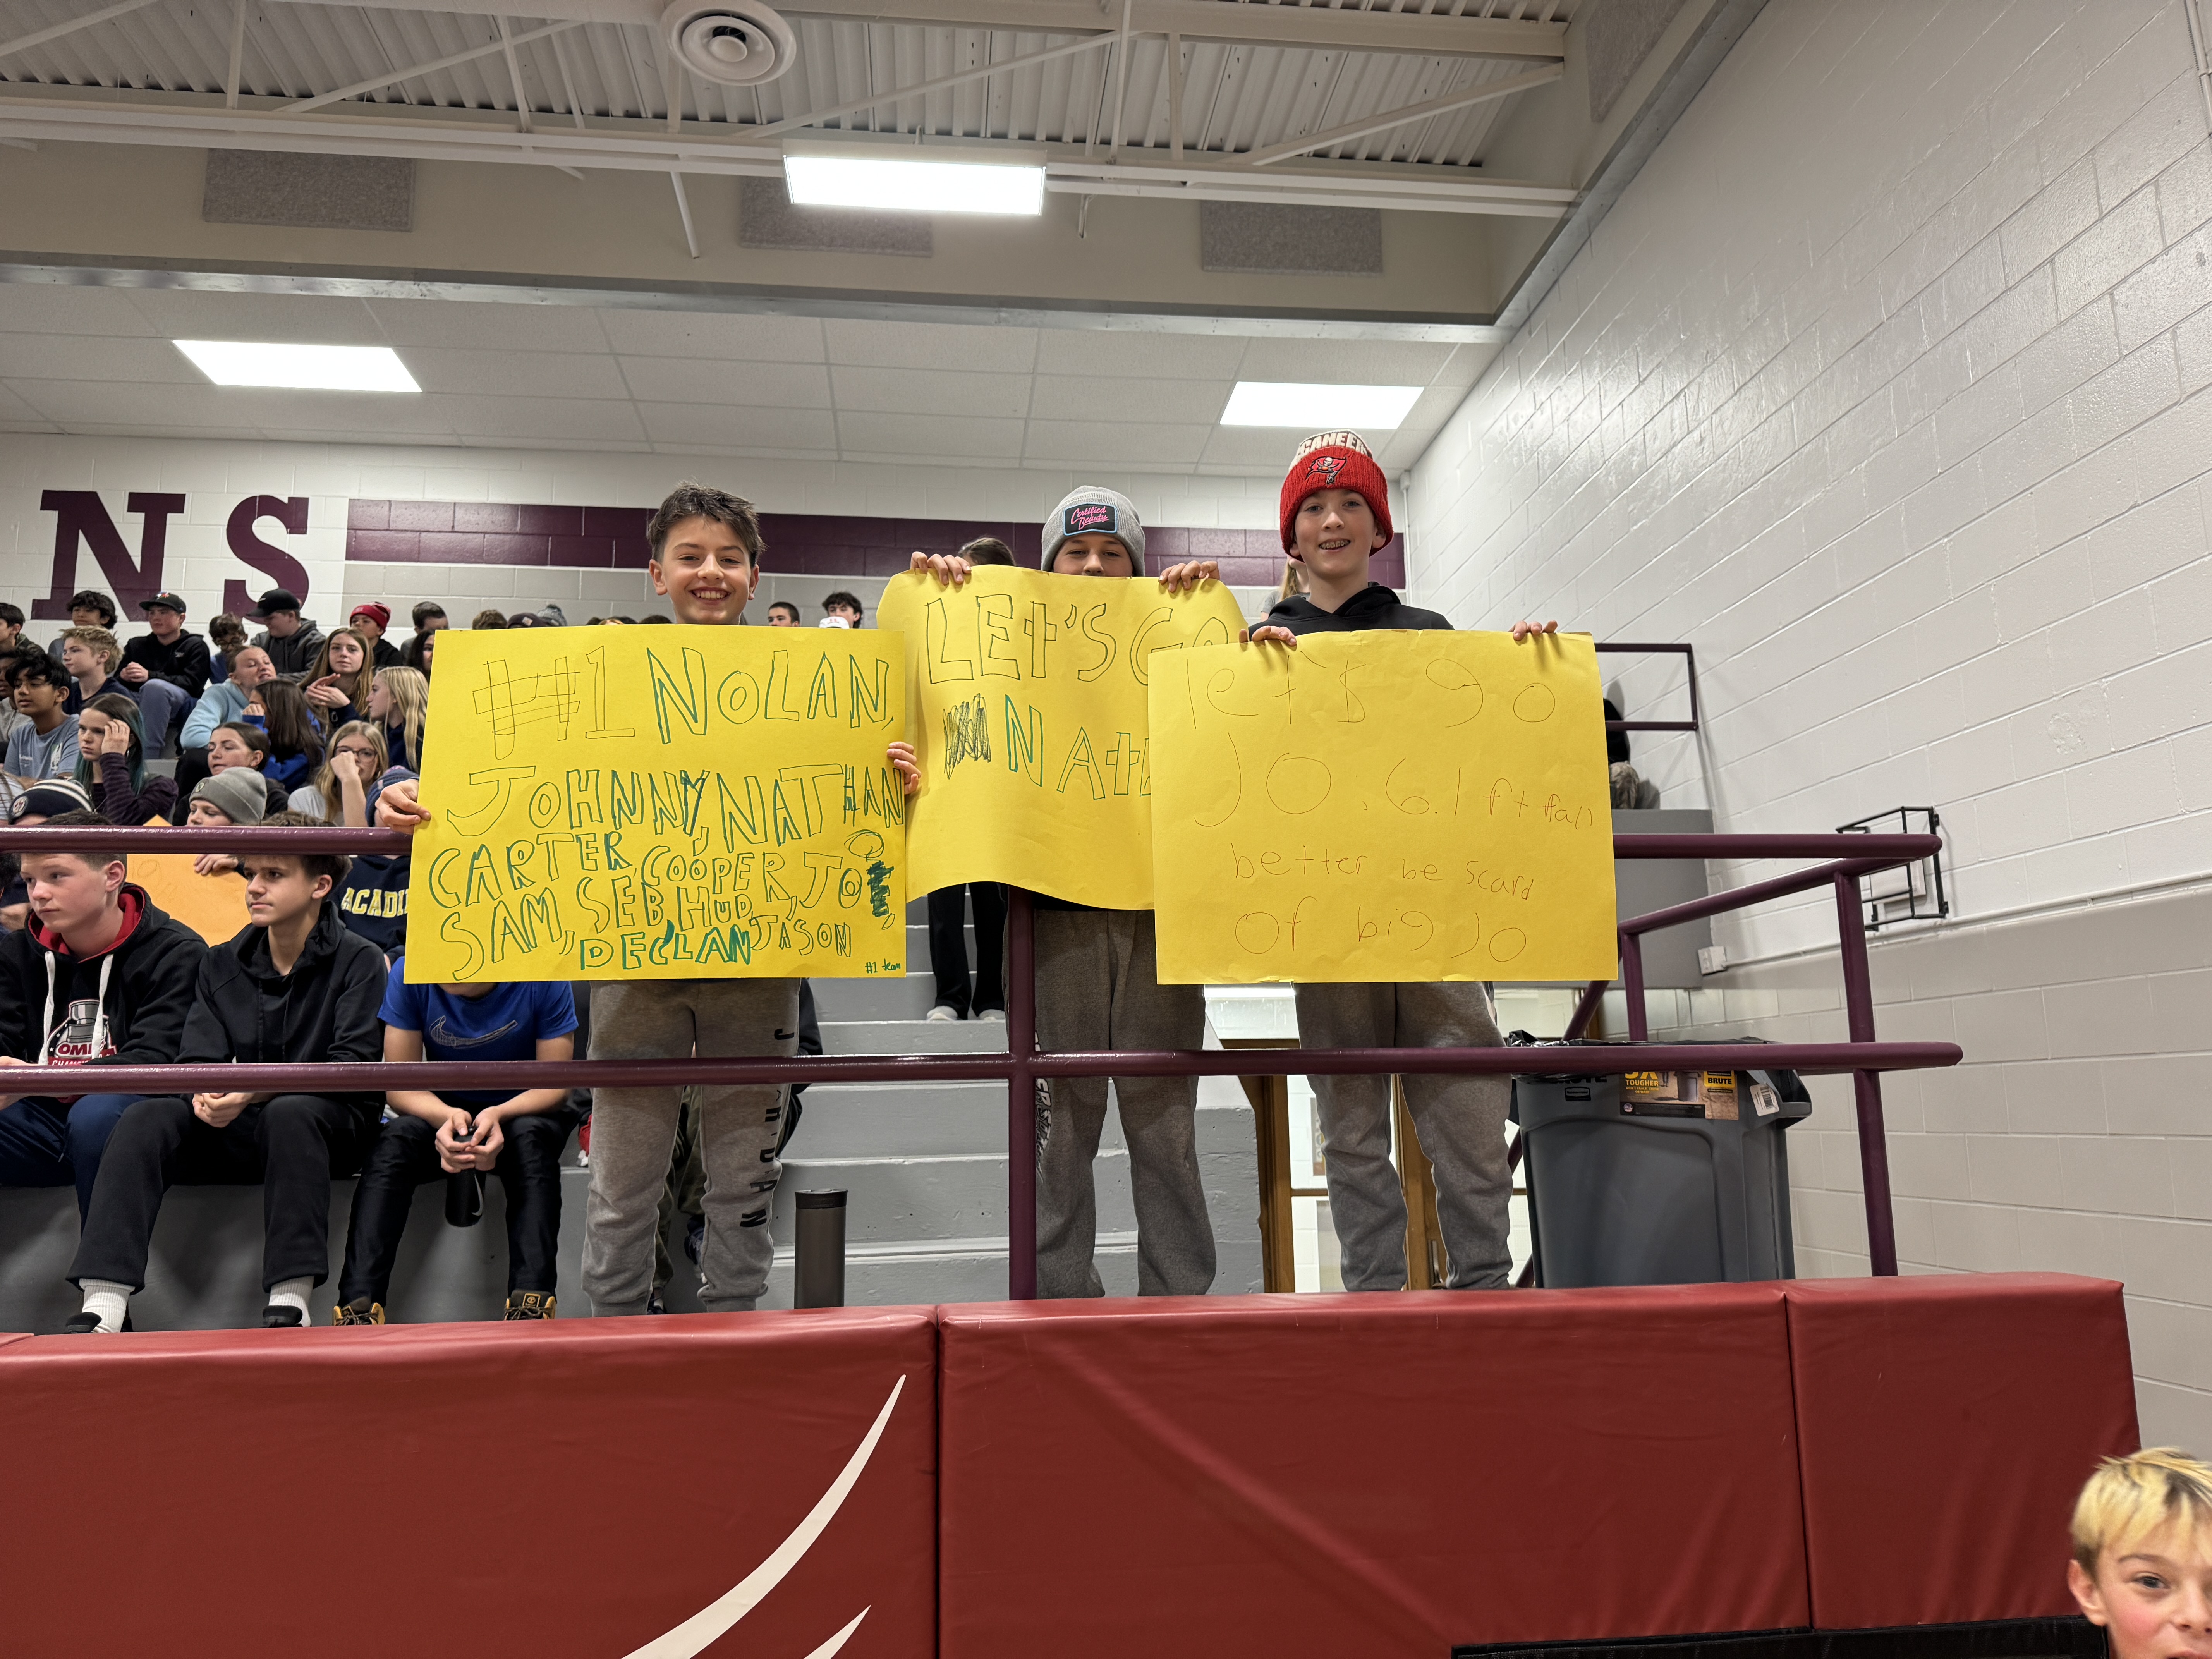 NS
#1 NOLAN,
JOHNNY, NATHAN
CARTER, COOPER, JO,
SAM, SEB, HUD, JASON
DECLAN
#1 team
LEt'S GO
NAtE
let's go
JO. 6.1 ft tall
better be scard
of big JO
Certified
Beauty
ACADI
JORDAN
BRUTE
TOUGHER